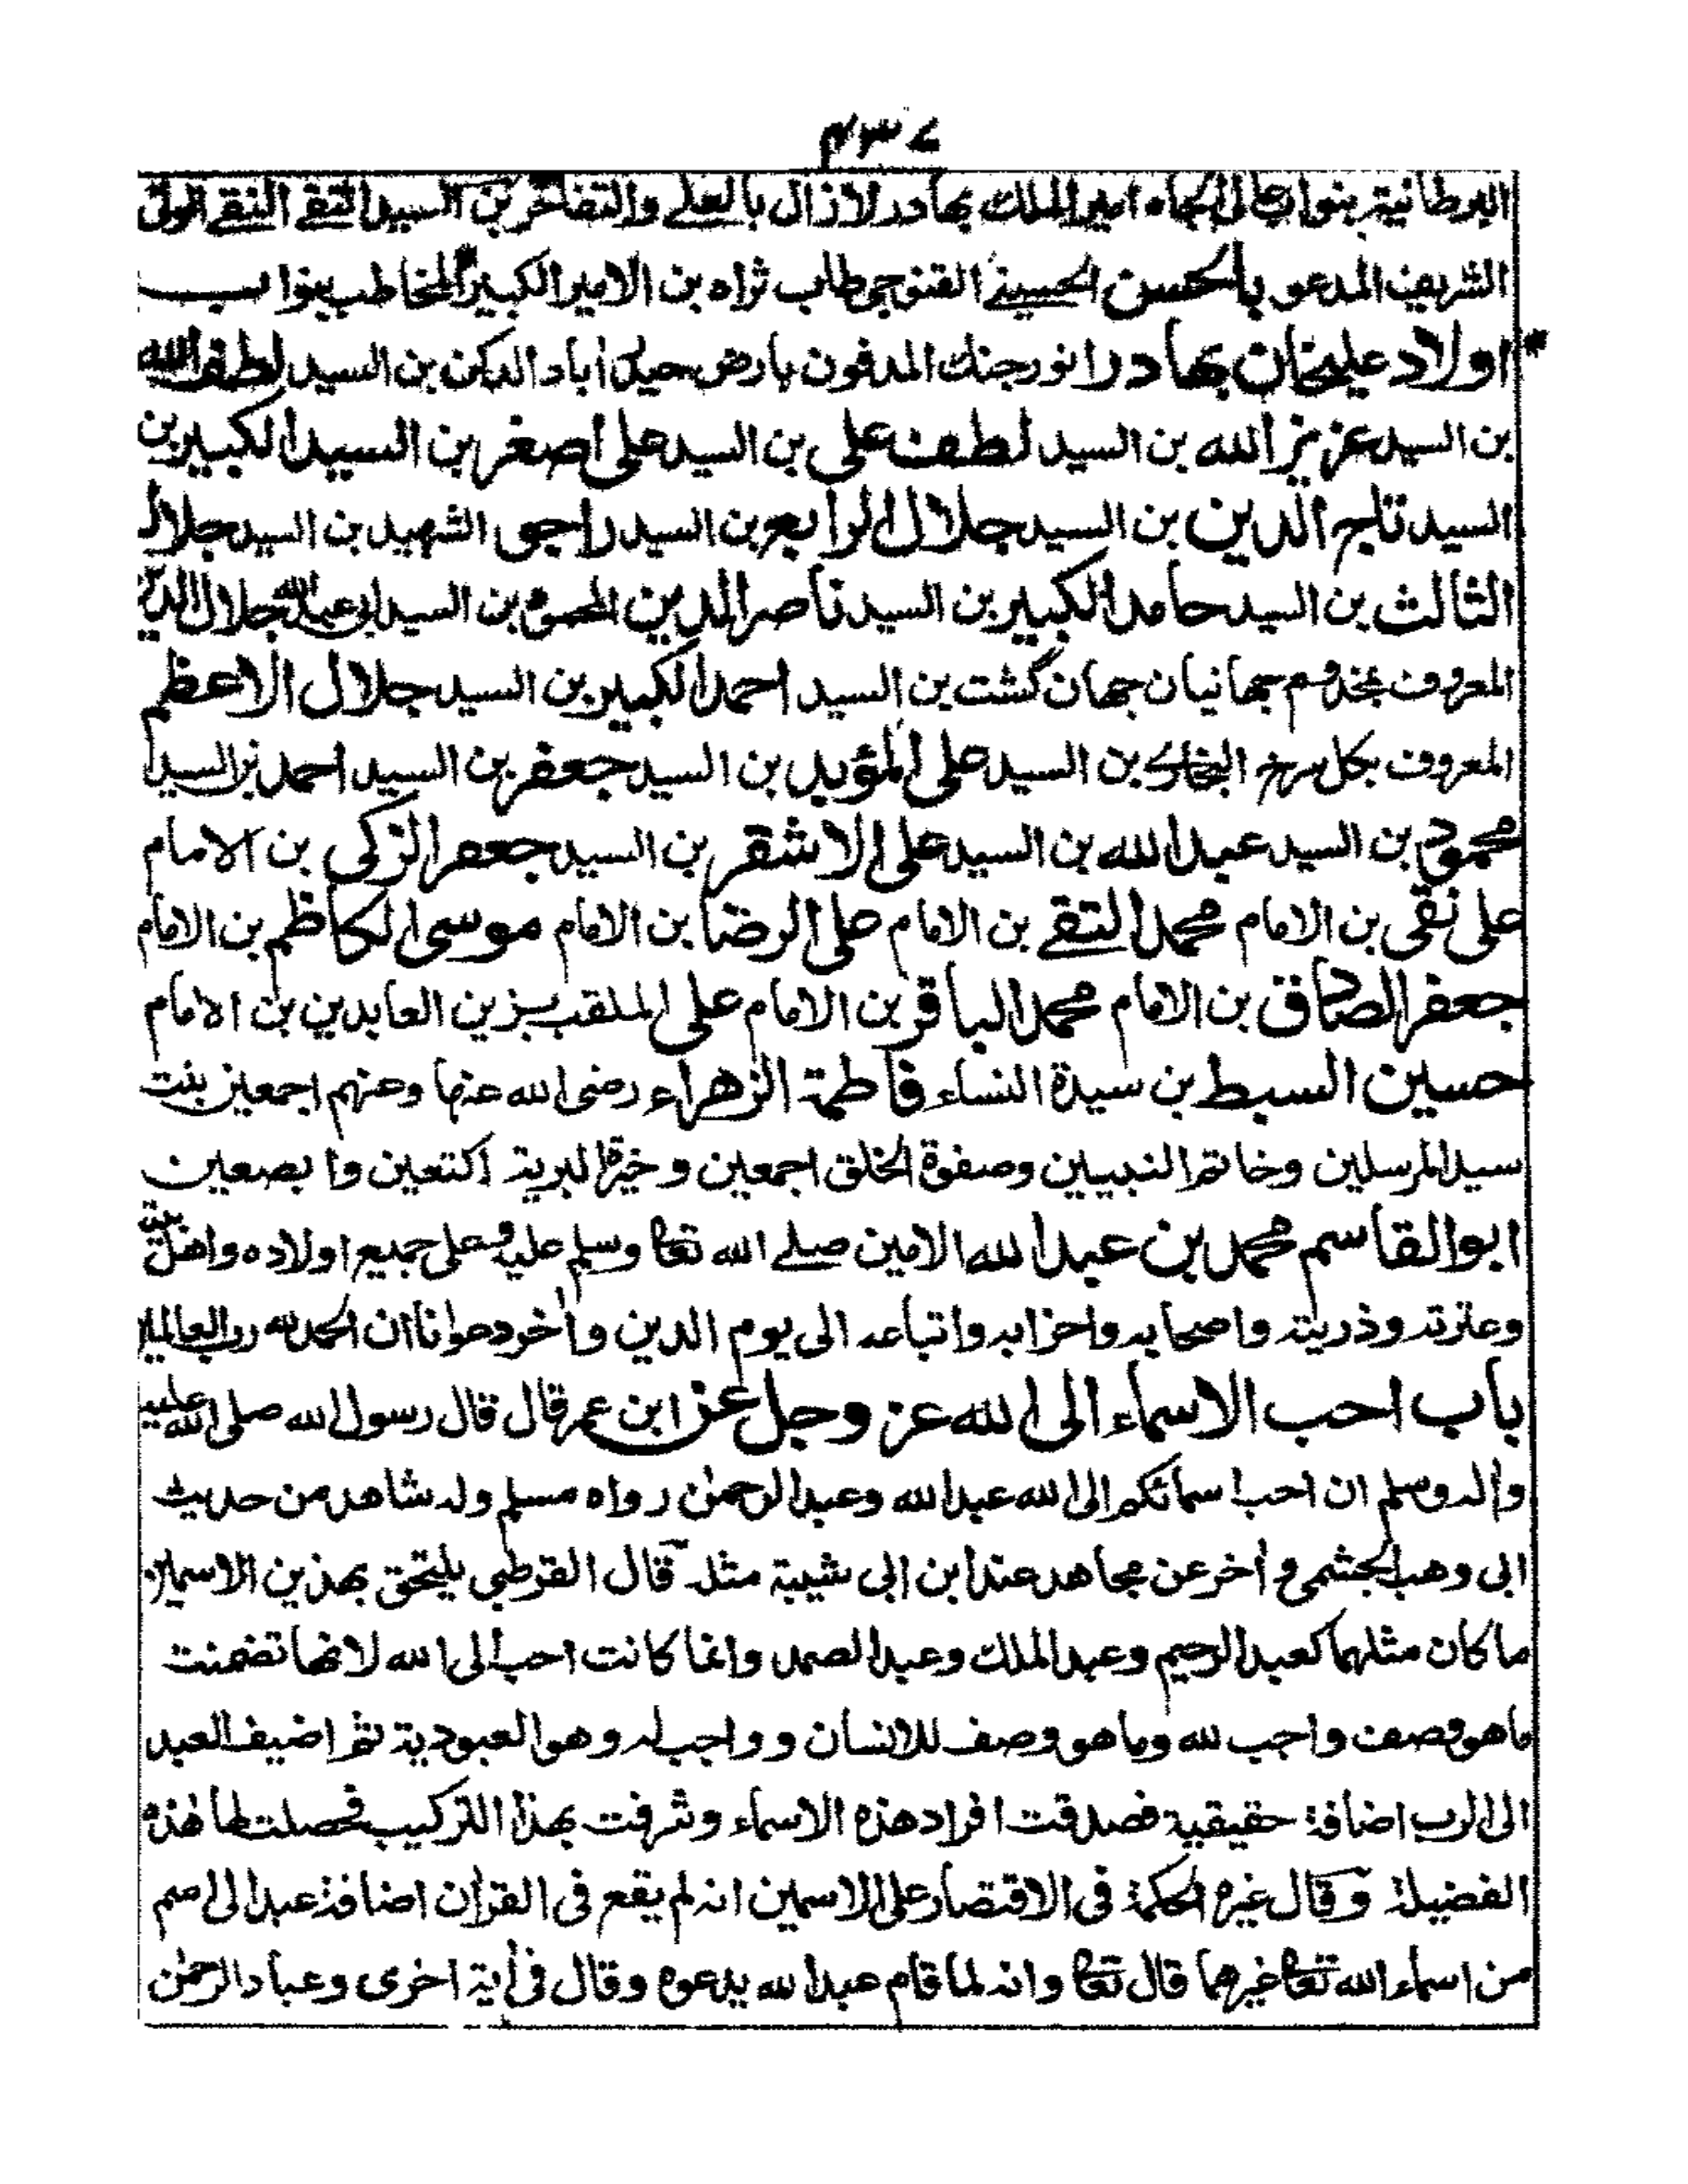 ۴۳۷
البرطانية بنواب عالى الجاه امير الملك بهادر لازال بالعلے والتفاخر بن السيد التقے النقے الولى
الشريف المدعو بالحسن الحسينے القنوجى طاب ثراه بن الامير الكبير المخاطب بنواب
اولاد عليخان بهادر انور جنك المدفون بارض حيدر اباد الدكن بن السيد لطف الله
بن السيد عزيز الله بن السيد لطف على بن السيد على اصغر بن السيد الكبير بن
السيد تاج الدين بن السيد جلال الرابع بن السيد راجى الشهيد بن السيد جلال
الثالث بن السيد حامد الكبير بن السيد ناصر الدين المحمود بن السيد ابى عبد الله جلال الدين
المعروف بمخدوم جهانيان جهان گشت بن السيد احمد الكبير بن السيد جلال الاعظم
المعروف بكل سرخ البخارى بن السيد على المؤيد بن السيد جعفر بن السيد احمد بن السيد
محمود بن السيد عبد الله بن السيد على الاشقر بن السيد جعفر الزكى بن الامام
على نقى بن الامام محمد التقے بن الامام على الرضا بن الامام موسى الكاظم بن الامام
جعفر الصادق بن الامام محمد الباقر بن الامام على الملقب بزين العابدين بن الامام
حسين السبط بن سيدة النساء فاطمة الزهراء رضى الله عنها وعنهم اجمعين بنت
سيد المرسلين وخاتم النبيين وصفوة الخلق اجمعين وخيرة البرية اكتعين وابصعين
ابو القاسم محمد بن عبد الله الامين صلے الله تعا وسلم عليه وعلى جميع اولاده واهل بيته
وعترته وذريته واصحابه واحزابه واتباعه الى يوم الدين واٰخر دعوانا ان الحمد لله رب العالمين
باب احب الاسماء الى الله عز وجل عن ابن عمر قال قال رسول الله صلى الله عليه
واٰله وسلم ان احب اسمائكم الى الله عبد الله وعبد الرحمٰن رواه مسلم وله شاهد من حديث
ابى وهب الجشمى واٰخر عن مجاهد عند ابن ابى شيبة مثله قال القرطبى يلتحق بهذين الاسمين
ما كان مثلهما كعبد الرحيم وعبد الملك وعبد الصمد وانما كانت احب الى الله لانها تضمنت
ما هو وصف واجب لله وما هو وصف للانسان وواجب له وهو العبودية ثم اضيف العبد
الى الرب اضافة حقيقية فصدقت افراد هذه الاسماء وشرفت بهذا التركيب فحصلت لها هٰذه
الفضيلة وقال غيره الحكمة فى الاقتصار على الاسمين انه لم يقع فى القراٰن اضافة عبد الى اسم
من اسماء الله تعا غيرهما قال تعا وانه لما قام عبد الله يدعوه وقال فى اٰية اخرى وعباد الرحمٰن